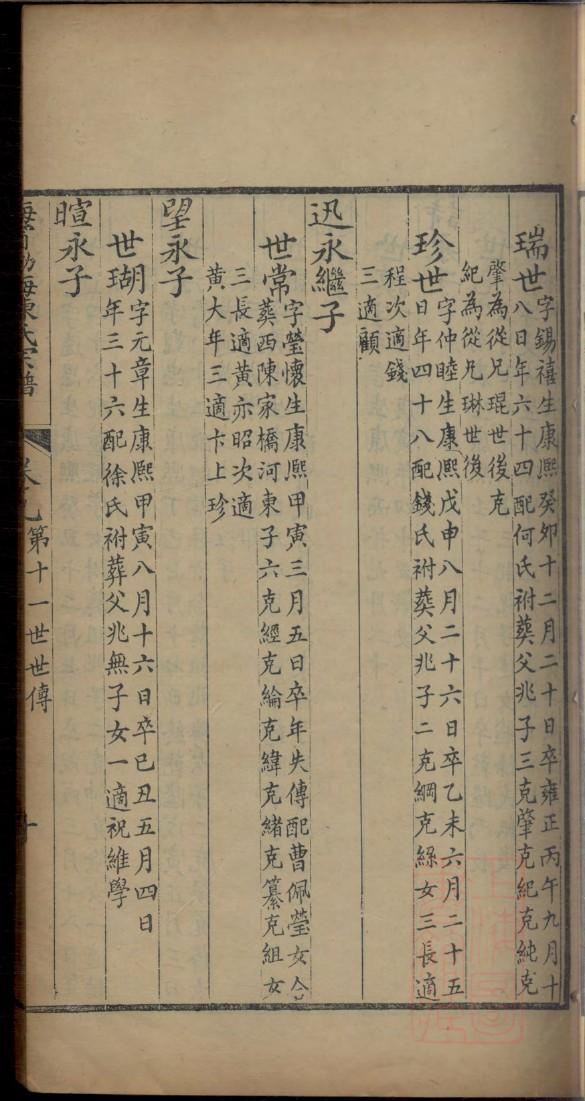 瑞世
字錫禧生康熙癸卯十二月二十日卒雍正丙午九月十
八日年六十四配何氏祔葬父兆子三克肇克紀克純克
肇為從兄琨世後克
紀為從兄琳世後
珍世
字仲睦生康熙戊申八月二十六日卒乙未六月二十五
日年四十八配錢氏祔葬父兆子二克綱克繇女三長適
程次適錢
三適顧
迅永繼子
世常
字瑩懷生康熙甲寅三月五日卒年失傳配曹佩瑩女合
葬西陳家橋河東子六克經克綸克緯克緒克纂克組女
三長適黃亦昭次適
黃大年三適卡上珍
望永子
世瑚
字元章生康熙甲寅八月十六日卒己丑五月四日
年三十六配徐氏祔葬父兆無子女一適祝維學
暄永子
陳氏宗譜
第十一世世傳